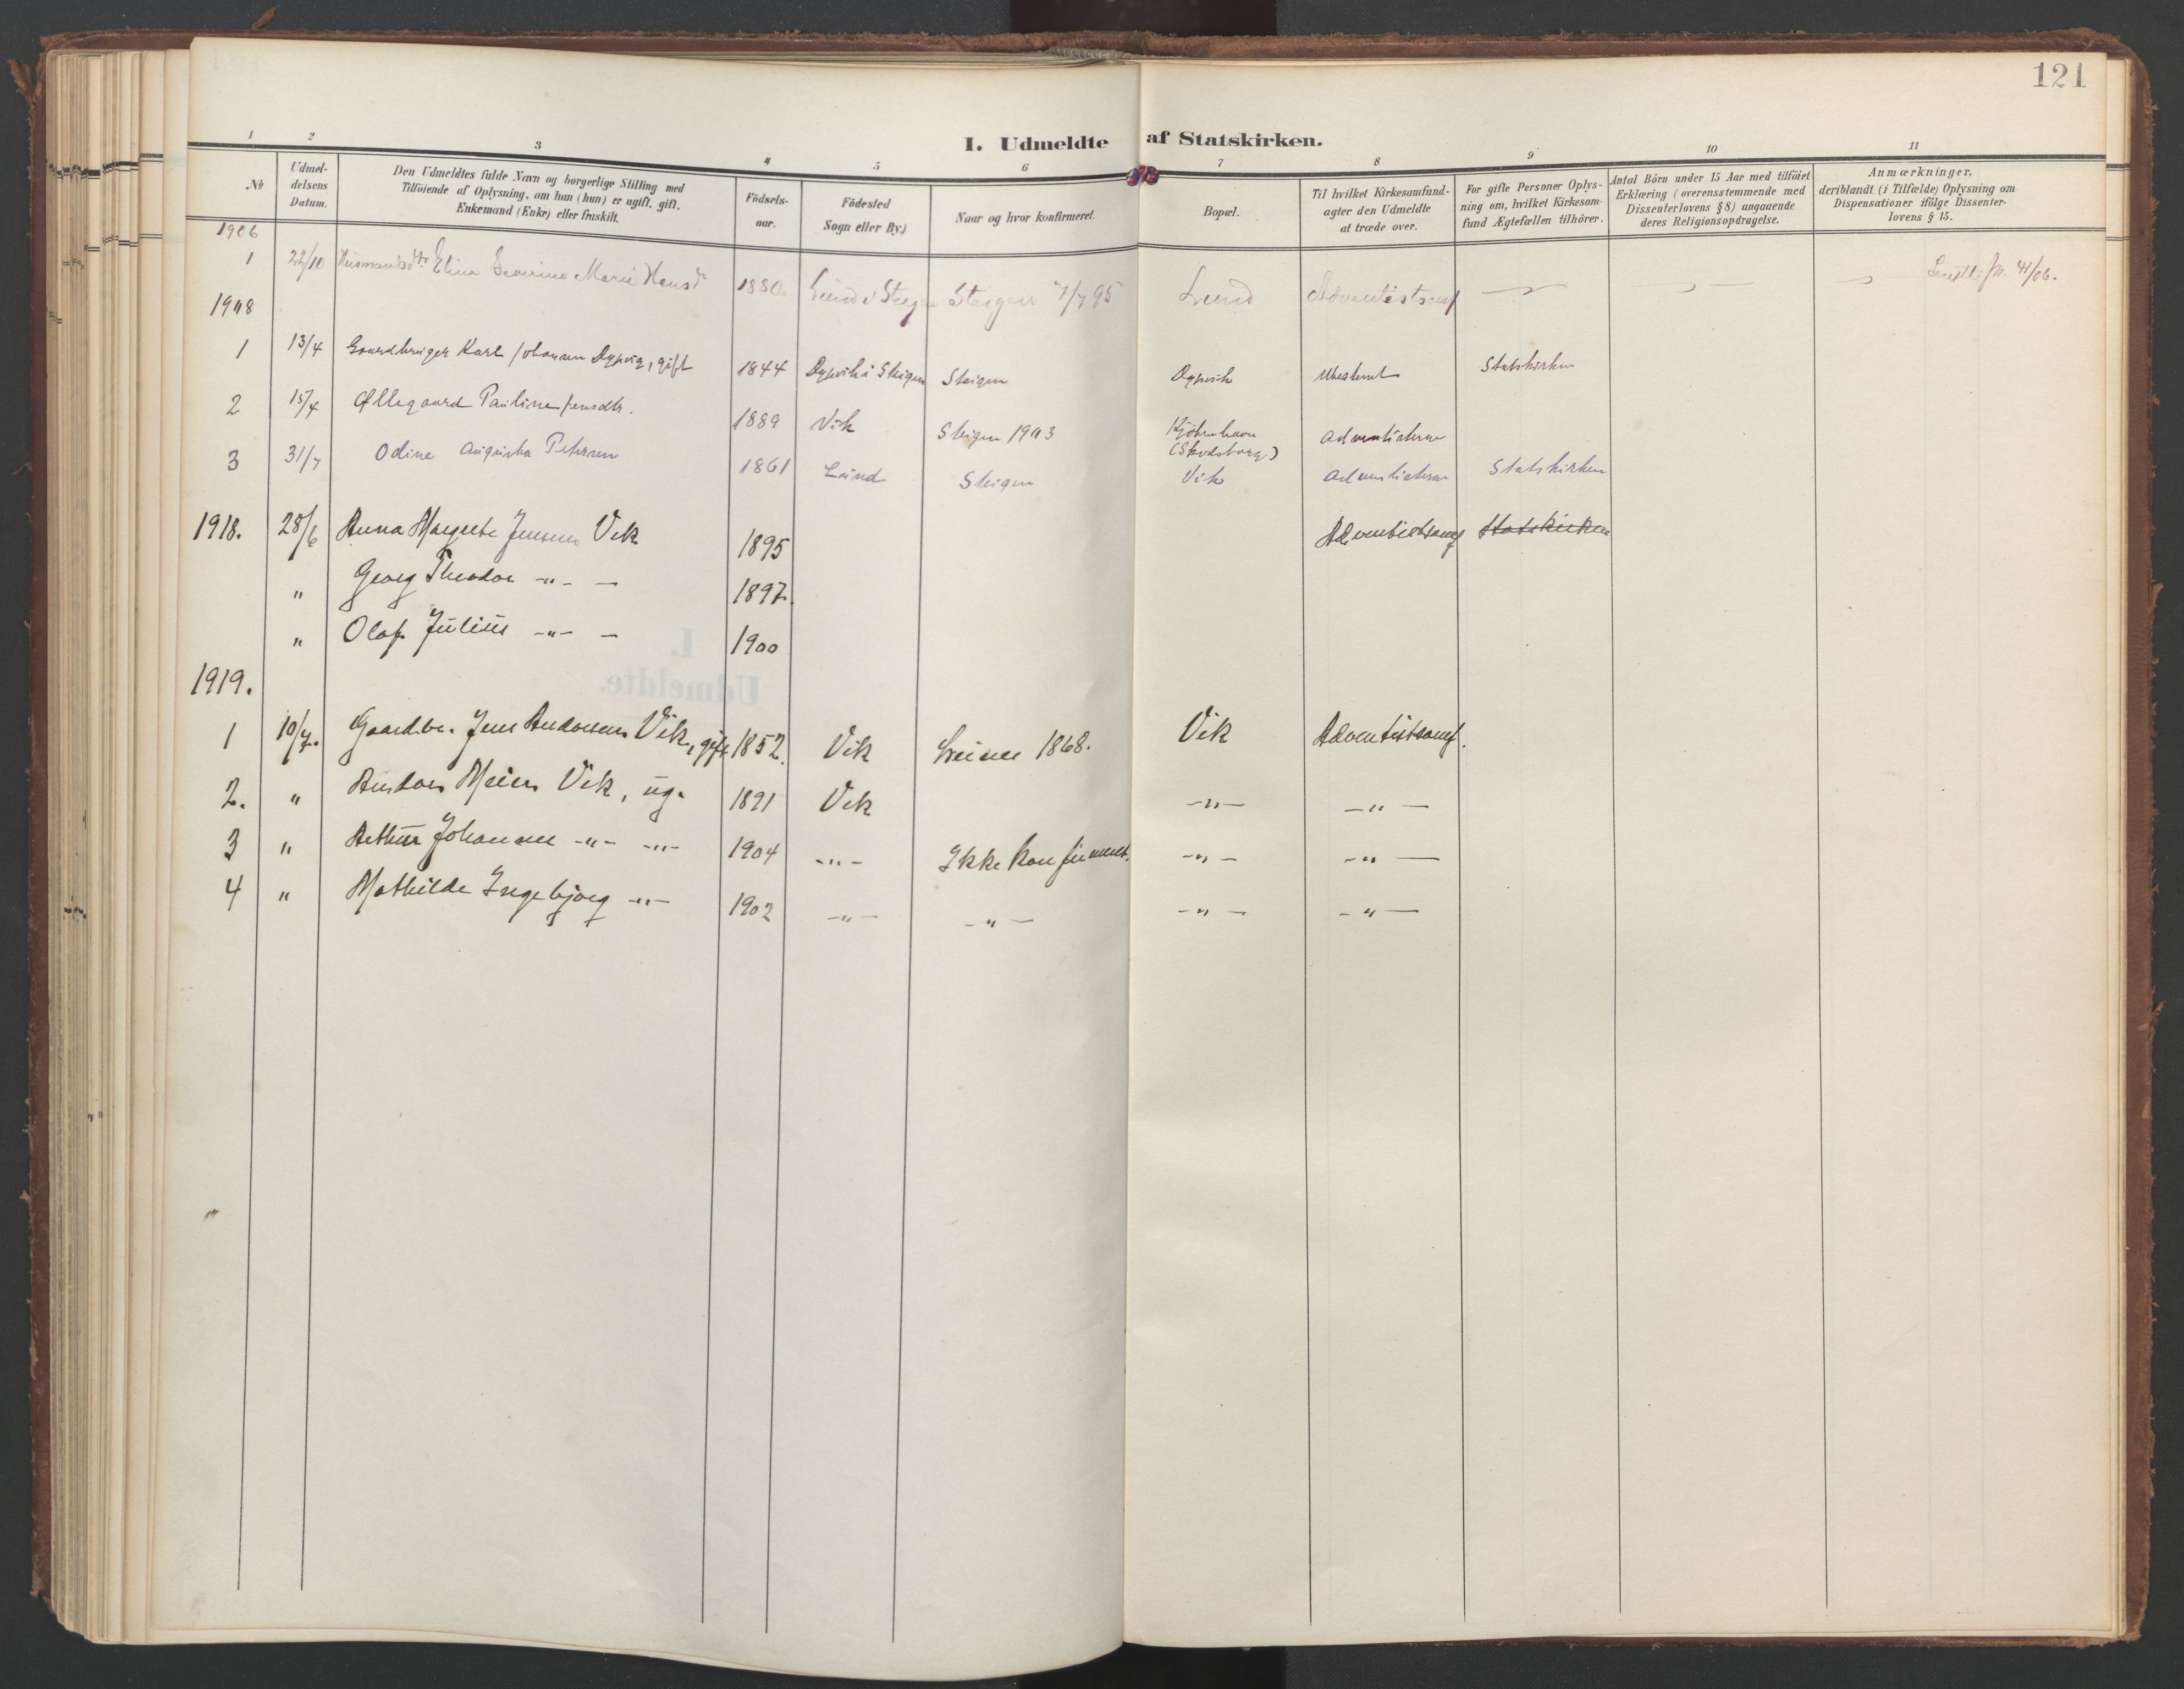 121
I. Udmeldte af Statskirken.
1 2 3 4 5 6 7 8 9 10 11
№ | Udmeldelsens Datum. | Den Udmeldtes fulde Navn og borgerlige Stilling med Tilföiende af Oplysning, om han (hun) er ugift, gift, Enkemand (Enke) eller fraskilt. | Födselsaar. | Födested Sogn eller By.) | Naar og hvor konfirmeret. | Bopæl. | Til hvilket Kirkesamfund agter den Udmeldte at træde over. | For gifte Personer Oplysning om, hvilket Kirkesamfund Ægtefællen tilhörer. | Antal Börn under 15 Aar med tilföiet Erklæring (overensstemmende med Dissenterlovens § 8) angaaende deres Religionsopdragelse. | Anmærkninger, deriblandt (i Tilfælde) Oplysning om Dispensationer ifölge Dissenterlovens § 15.
1906
1 22/10 Husmandsdtr Elina Severine Marie Hansdr 1880 Lund i Steigen Steigen 7/7 95 Lund Adventistsamf — — — 41/06.
1908
1 13/4 Gaardbruger Karl Johansen Dypvig, gift 1844 Dypvik i Steigen Steigen Dypvik Ubestemt Statskirken
2 15/4 Øllegaard Pauline Jensdtr. 1889 Vik Steigen 1903 Kjöbenhavn (Skodsborg) Adventisterne
3 31/7 Odine Augusta Petersen 1861 Lund Steigen Vik Adventisterne Statskirken
1918. 28/6 Anna Margrete Jensen Vik 1895 Adventistsamf Statskirken
" Georg Theodor -"- — 1897.
" Olaf Julius -"- — 1900
1919.
1 10/7. Gaardbr. Jens Andorsen Vik, gift 1852. Vik 1868. Vik Adventistsamf.
2. " Andor Meier Vik, ug. 1891 Vik -"- -"-
3 " Arthur Johannes -"- -"- 1904 -"- Ikke konfirmeret. -"- -"-
4 " Mathilde Ingebjorg -"- 1902 -"- -"- -"- -"-
I.
Udmeldte.